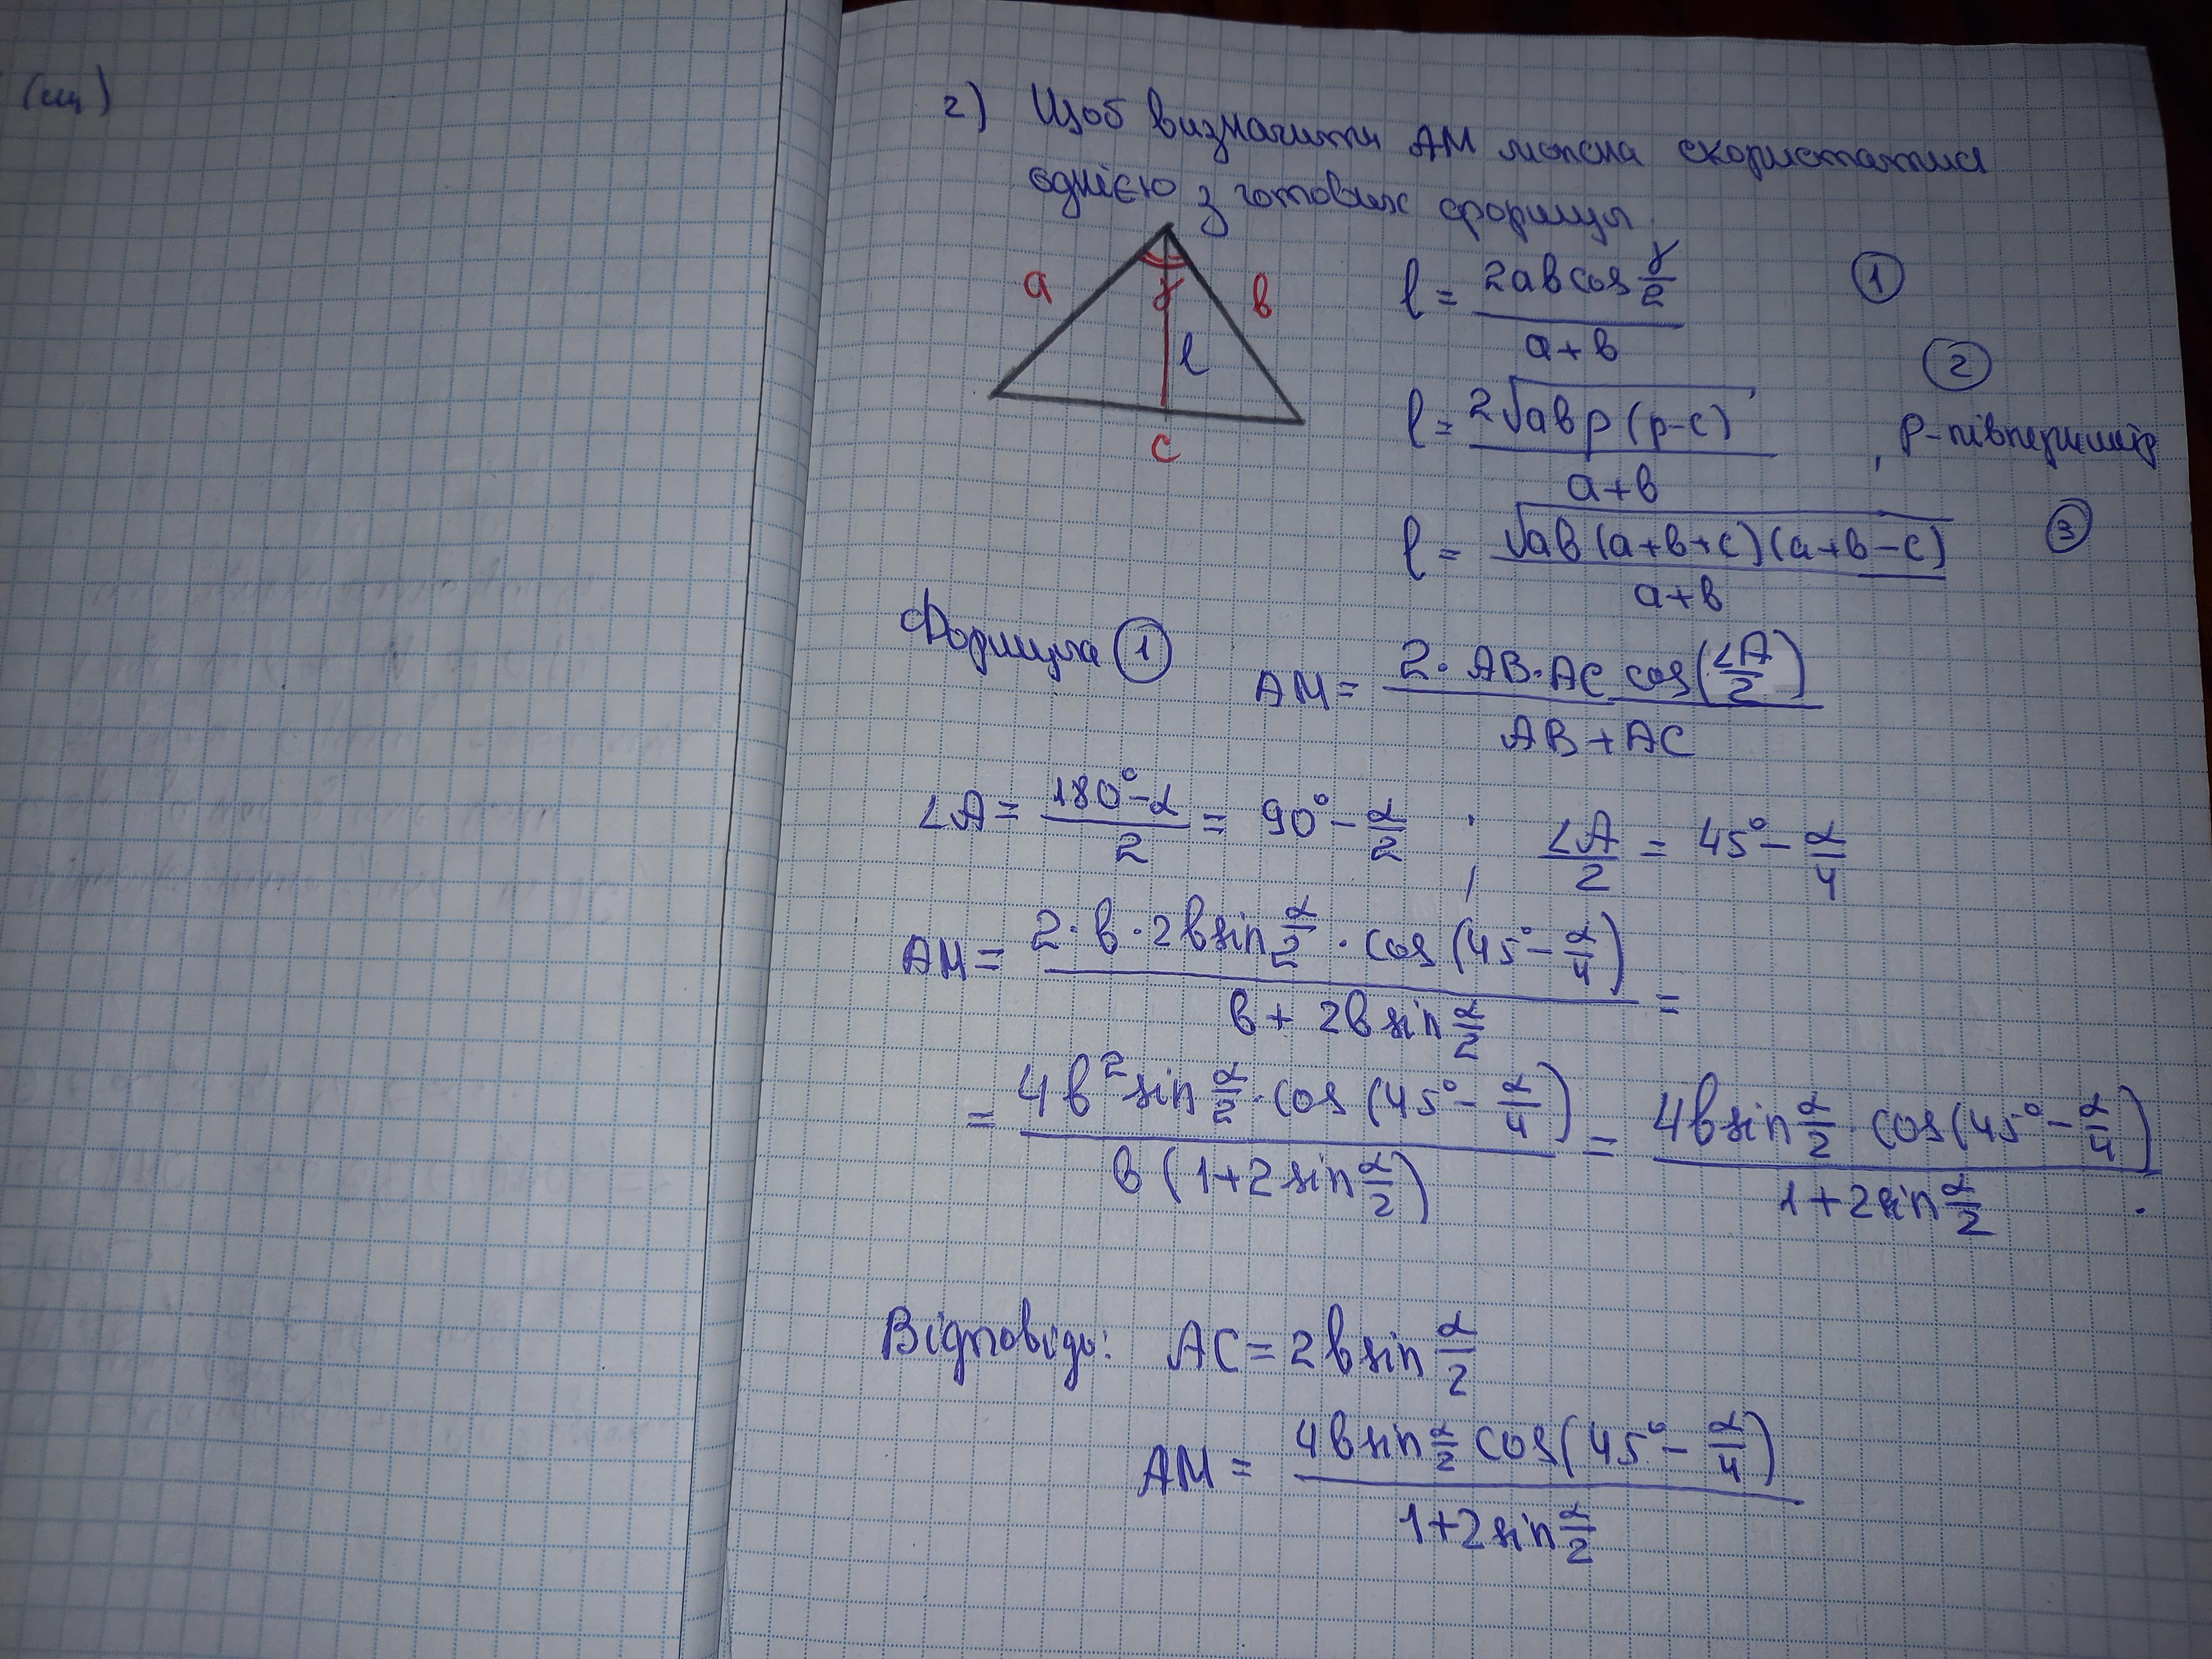 (ащ)
2) Щоб визначити AM можна скористатися
однією з готових формул
a γ b l c
l = 2ab cos γ/2 / a+b ①
l = 2√abp(p-c) / a+b , p-півпериметр ②
l = √ab(a+b+c)(a+b-c) / a+b ③
Формула ① AM = 2·AB·AC cos(∠A/2) / AB+AC
∠A = 180°-α / 2 = 90° - α/2 ; ∠A/2 = 45° - α/4
AM = 2·b·2b sin α/2 · cos(45° - α/4) / b + 2b sin α/2 =
= 4b² sin α/2 · cos(45° - α/4) / b(1+2 sin α/2) = 4b sin α/2 · cos(45° - α/4) / 1+2 sin α/2 .
Відповідь: AC = 2b sin α/2
AM = 4b sin α/2 cos(45° - α/4) / 1+2 sin α/2